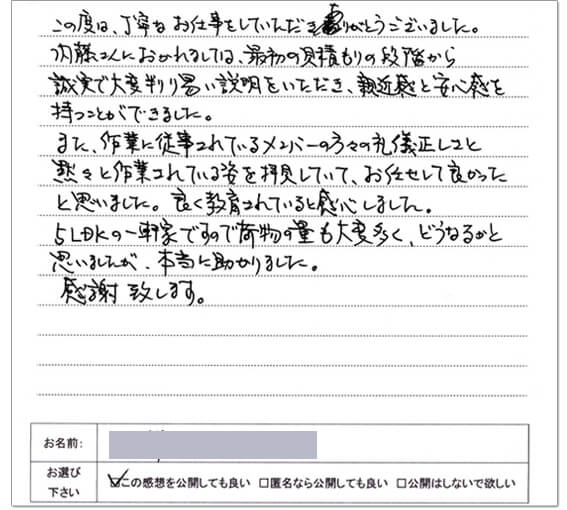 この度は、丁寧なお仕事をしていただきありがとうございました。
内藤さんにおかれましては、最初の見積もりの段階から
誠実で大変判り易い説明をいただき、親近感と安心感を
持つことができました。
また、作業に従事されているメンバーの方々の礼儀正しさと
黙々と作業されている姿を拝見していて、お任せして良かった
と思いました。良く教育されていると感心しました。
5LDKの一軒家ですので荷物の量も大変多く、どうなるかと
思いましたが、本当に助かりました。
感謝致します。
お名前:
お選び下さい
☑この感想を公開しても良い □匿名なら公開しても良い □公開はしないで欲しい